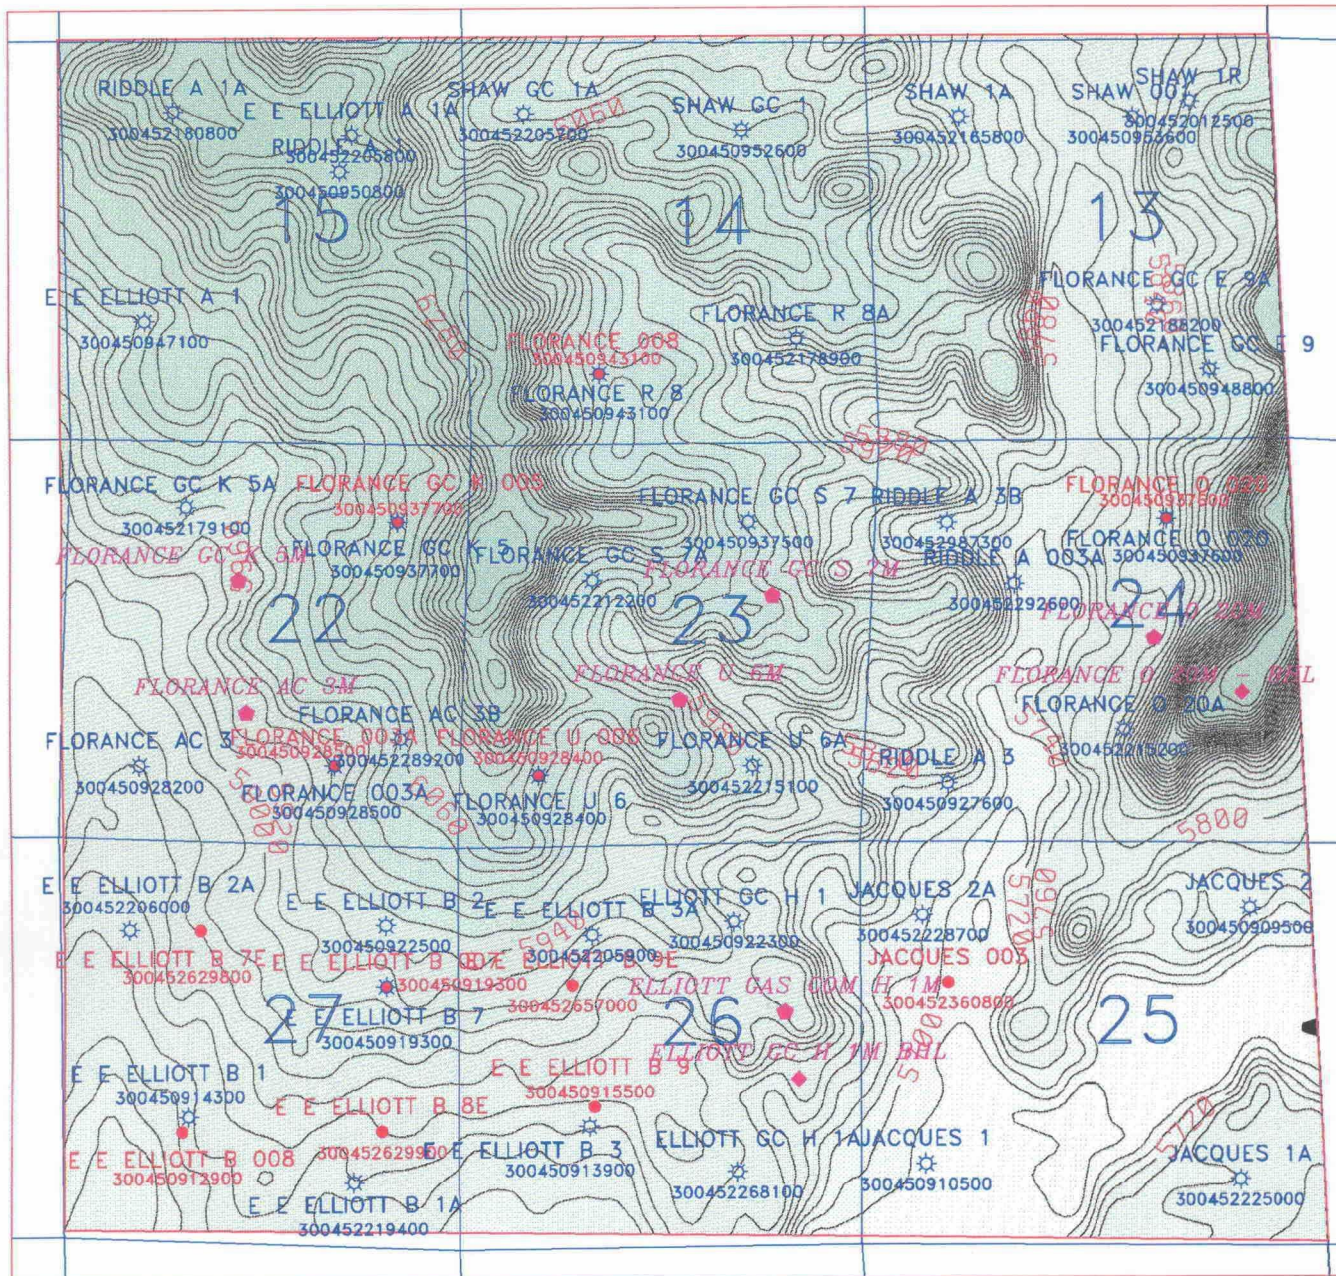 RIDDLE A 1A
300452180800
E E ELLIOTT A 1A
300452205800
RIDDLE A 1
300450950800
SHAW GC 1A
300452205700
6060
SHAW GC 1
300450952600
SHAW 1A
300452165800
SHAW 001
300450953600
SHAW 1R
300452012500
15
14
13
E E ELLIOTT A 1
300450947100
6280
FLORANCE 008
300450943100
FLORANCE R 8
300450943100
FLORANCE R 8A
300452178900
5780
FLORANCE GC E 9A
300452188200
FLORANCE GC E 9
300450948800
5970
FLORANCE GC K 5A
300452179100
FLORANCE GC K 005
300450937700
FLORANCE GC K 5
300450937700
FLORANCE GC K 5M
FLORANCE GC S 7A
300452212200
FLORANCE GC S 7
300450937500
FLORANCE GC S 7M
RIDDLE A 3B
300452987300
RIDDLE A 003A
300452292600
FLORANCE O 020
300450937600
FLORANCE O 020
300450937600
FLORANCE O 20M
22
23
24
FLORANCE AC 3M
FLORANCE U 6M
FLORANCE O 20M - BHL
FLORANCE O 20A
300452215200
5740
FLORANCE AC 3
300450928200
FLORANCE AC 3B
300452289200
FLORANCE 003A
300450928500
FLORANCE 003A
300450928500
FLORANCE U 006
300450928400
FLORANCE U 6
300450928400
5980
FLORANCE U 6A
300452215100
5820
RIDDLE A 3
300450927600
6000
6020
6060
5800
E E ELLIOTT B 2A
300452206000
E E ELLIOTT B 2
300450922500
E E ELLIOTT B 3A
300452205900
5940
ELLIOTT GC H 1
300450922300
JACQUES 2A
300452228700
5720
5760
JACQUES 2
300450909500
E E ELLIOTT B 7E
300452629800
E E ELLIOTT B 007
300450919300
E E ELLIOTT B 9E
300452657000
JACQUES 003
300452360800
ELLIOTT GAS COM H 1M
E E ELLIOTT B 7
300450919300
27
26
25
5700
ELLIOTT GC H 1M BHL
E E ELLIOTT B 1
300450914300
E E ELLIOTT B 9
300450915500
E E ELLIOTT B 8E
300452629900
E E ELLIOTT B 008
300450912900
E E ELLIOTT B 3
300450913900
ELLIOTT GC H 1A
300452268100
JACQUES 1
300450910500
5720
JACQUES 1A
300452225000
E E ELLIOTT B 1A
300452219400